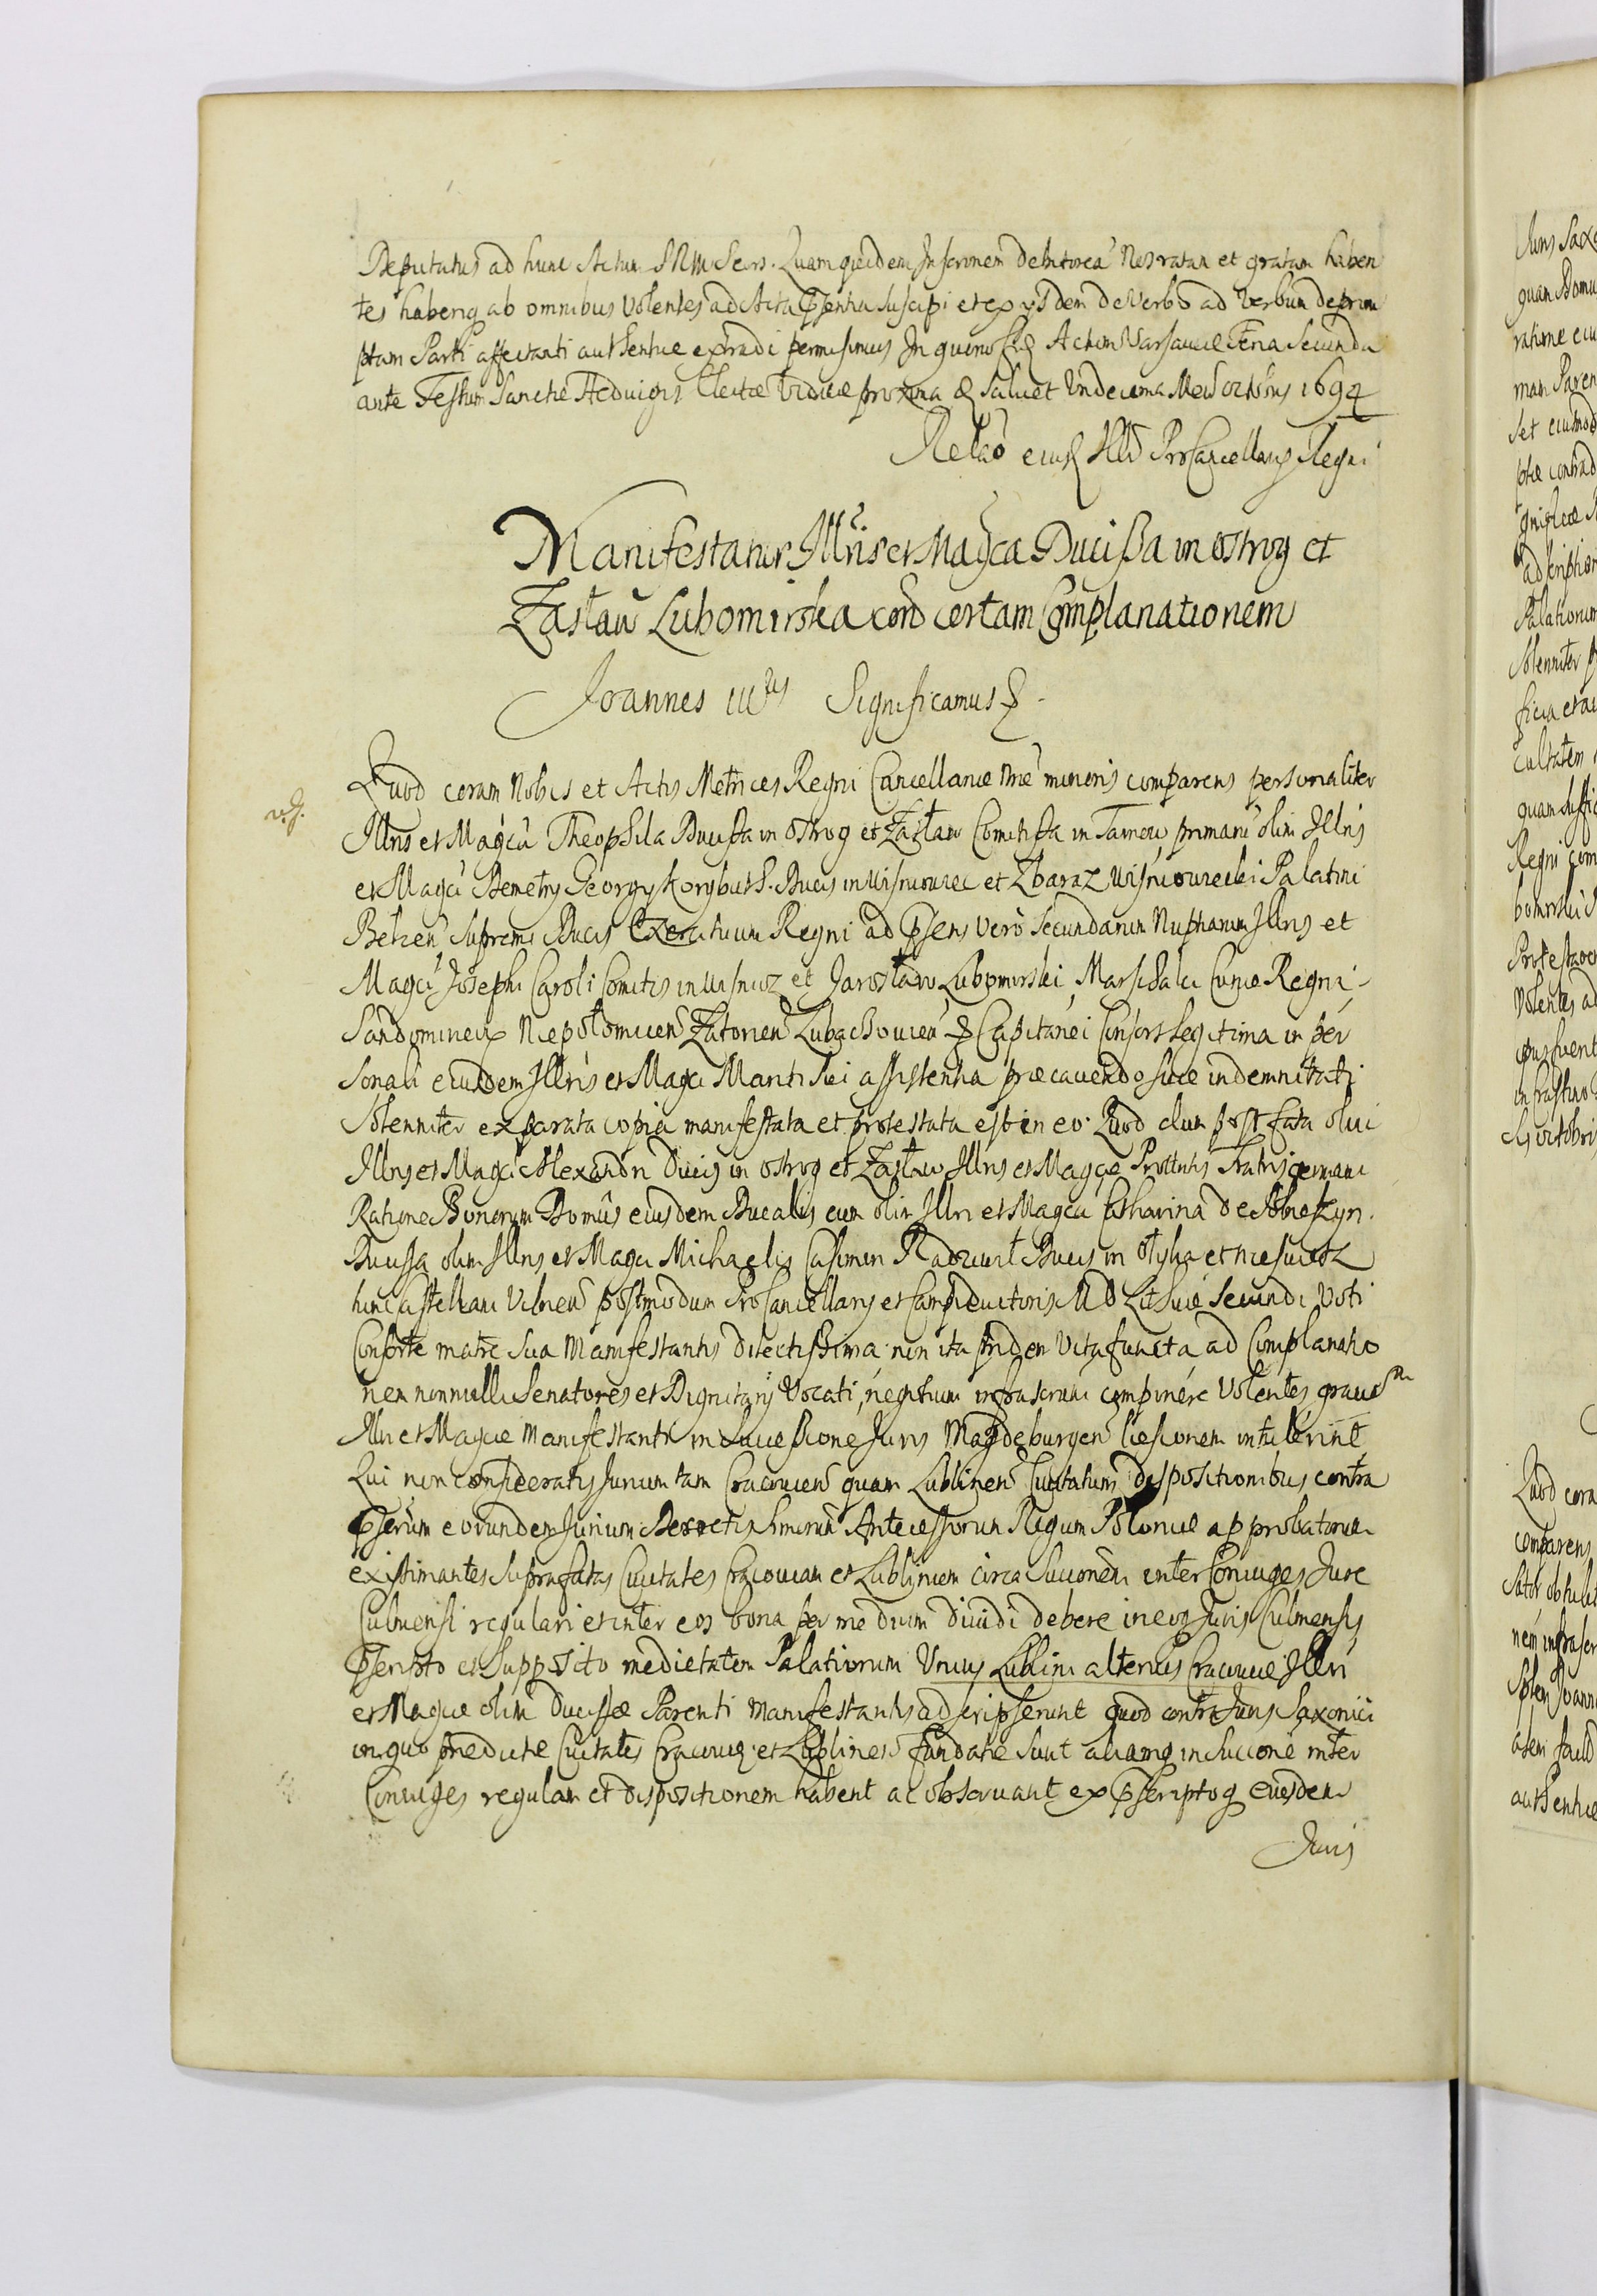 Deputatus ad hunc Actum SRM Secrs. Quam quidem Inscronem debitorea Nos ratam et gratam haben
tes haberiq ab omnibus volentes ad Acta pnsentia suscipi et ex ysdem de verbo ad verbum deprom
ptam Parti affectanti authentice extradi permisimus In quorum fidem Actum Varsaviae Feria Secunda
ante Festum Sanctae Hedvigis Electae Viduae proxima et salvet undecima Mensis octobris 1694
Relao eiusd Illi ProCancellarij Regni
Manifestatur Illris et Magca Ducissa in ostrog et
Zasław Lubomirska cond certam Complanationem
Joannes IIItius Significamus &.
Quod coram Nobis et Actis Metrices Regni Cancellariae nrae minoris comparens personaliter
Illris et Magca Theophila Ducissa in ostrog et Zasław Comitissa in Tarnow primani olim Illris
et Magci Demetry Georgy Korybuth S. Ducis in Wisniowiec et Zbaraz Wisniowiecki Palatini
Belzen Supremi Ducis Exercituum Regni ad pnsens vero Secundarum Nuptiarum Illris et
Magci Josephi Caroli Comitis in Wisnicz et Jarosław Lubomirski Marschalci Curiae Regni
Sandomirien Niepołomicen Zatorien Lubachovien & Capitanei Consors legitima in per
sonali eiusdem Illris et Magci Mariti sui assistentia praecavendo suae indemnitati
Solenniter ex parata copia manifestata et protestata est in eo. Quod dum post fata olim
Illris et Magci Alexandri Ducis in ostrog et Zasław Illris et Magcae Prottntis Fratris germani
Ratione Bonorum Domus eiusdem Ducalis cum olim Illri et Magca Catharina de Sobieszyn
Ducissa olim Illris et Magci Michaelis Casimiri Radziwił Ducis in Ołyka et Nieswiez
tunc Castellani Vilnen postmodum ProCancellarij et Campiductoris MD Lithuae Secundi Voti
Consorte matre sua Manifestantis dilectissima non ita pridem vita functa ad Complanatio
nem nonnulli Senatores et Dignitarij vocati, negotium infrascrum componere volentes gravem
Illri et Magcae Manifestanti in Successione Juris Magdeburgen laesionem intulerint
Qui non consideratis Jurium tam Cracovien quam Lublinen Civitatum dispositionibus contra
pnserum eorundem Jurium Serenissimorum Antecessorum Regum Poloniae approbatorum
existimantes suprafatas Civitates Cracoviam et Lublinum circa Succonem inter Coniuges Jure
Culmensi regulari et inter eos bona per medium dividi debere in eoq Juris Culmensis
pnscripto et supposito medietatem Palatiorum unius Lublini alterius Cracoviae Illri
et Magcae olim Ducissae Parenti Manifestantis adscripserunt quod contra Juris Saxonici
in quo praedictae Civitates Cracovien et Lublinen fundatae sunt aliamq in Succone inter
Coniuges regulam et dispositionem habent ac observant ex pnscriptoq eiusdem
Juris